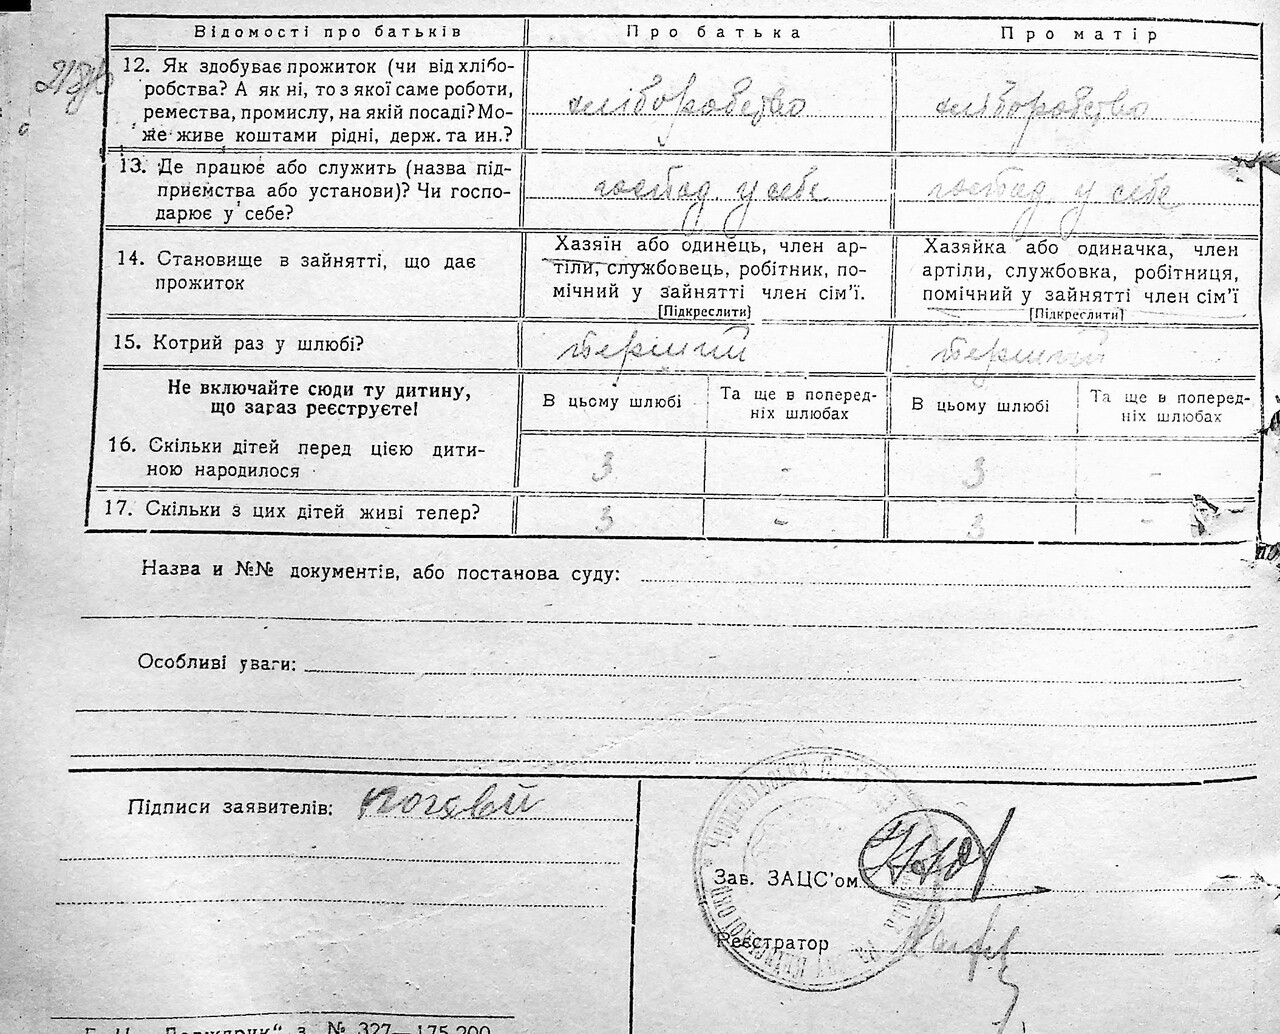 Відомості про батьків
Про батька
Про матір
12. Як здобуває прожиток (чи від хлібо-
робства? А як ні, то з якої саме роботи,
ремества, промислу, на якій посаді? Мо-
же живе коштами рідні, держ. та ин.?
хліборобство
хліборобство
13. Де працює або служить (назва під-
приємства або установи)? Чи госпо-
дарює у себе?
господ. у себе
господ. у себе
14. Становище в зайнятті, що дає
прожиток
Хазяїн або одинець, член ар-
тіли, службовець, робітник, по-
мічний у зайнятті член сім’ї.
[Підкреслити]
Хазяйка або одиначка, член
артіли, службовка, робітниця,
помічний у зайнятті член сім’ї
[Підкреслити]
15. Котрий раз у шлюбі?
перший
перший
Не включайте сюди ту дитину,
що зараз реєструєте!
В цьому шлюбі
Та ще в поперед-
ніх шлюбах
В цьому шлюбі
Та ще в поперед-
ніх шлюбах
16. Скільки дітей перед цією дити-
ною народилося
3
-
3
-
17. Скільки з цих дітей живі тепер?
3
-
3
-
Назва и №№ документів, або постанова суду:
Особливі уваги:
Підписи заявителів:
Зав. ЗАЦС’ом
Реєстратор
З. № 327—175.200